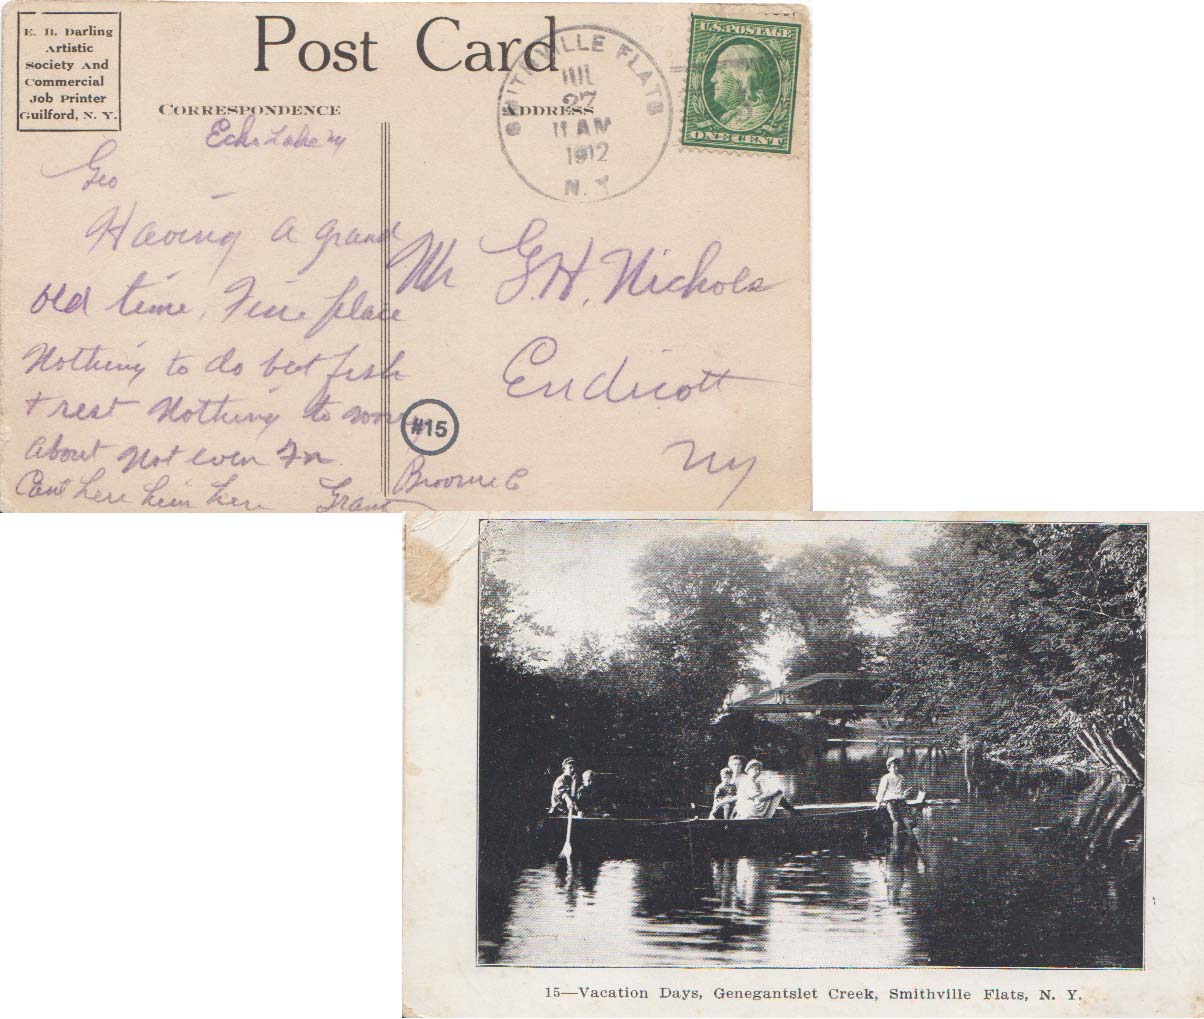 E. B. Darling
Artistic
Society And
Commercial
Job Printer
Guilford, N. Y.
Post Card
CORRESPONDENCE
ADDRESS
SMITHVILLE FLATS
JUL
27
11 AM
1912
N. Y.
U.S. POSTAGE
ONE CENT
Echo Lake NY
Geo
Having a grand
old time. Fine place
Nothing to do but fish
+ rest Nothing to worry
about not even
Cant here here
Grant
Mr G. H. Nichols
Endicott
NY
Broome C
#15
15—Vacation Days, Genegantslet Creek, Smithville Flats, N. Y.